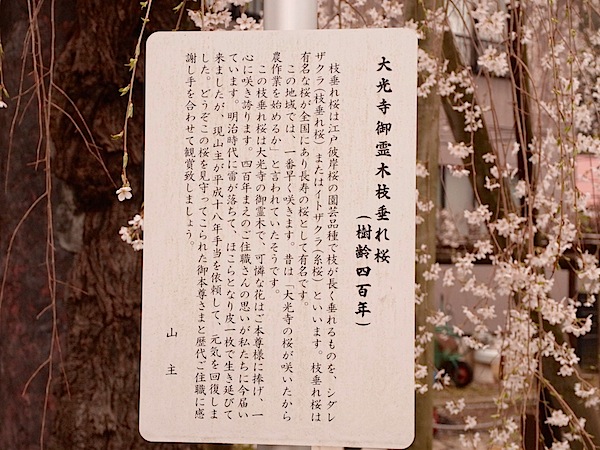 大光寺御霊木枝垂れ桜
(樹齢四百年)
枝垂れ桜は江戸彼岸桜の園芸品種で枝が長く垂れるものを、シダレ
ザクラ(枝垂れ桜)またはイトザクラ(糸桜)といいます。枝垂れ桜は
有名な桜が全国にあり長寿の桜として有名です。
この地域では、一番早く咲きます。昔は「大光寺の桜が咲いたから
農作業を始めるか」と言われていたそうです。
この枝垂れ桜は大光寺の御霊木で、可憐な花はご本尊様に捧げ、一
心に咲き誇ります。四百年まえのご住職さんの思いが私たちに今届い
ています。明治時代に雷が落ちて、ほこらとなり皮一枚で生き延びて
来ましたが、現山主が平成十八年手当を依頼して、元気を回復しま
した。どうぞこの桜を見守ってこられた御本尊さまと歴代ご住職に感
謝し手を合わせて観賞致しましょう。
山主